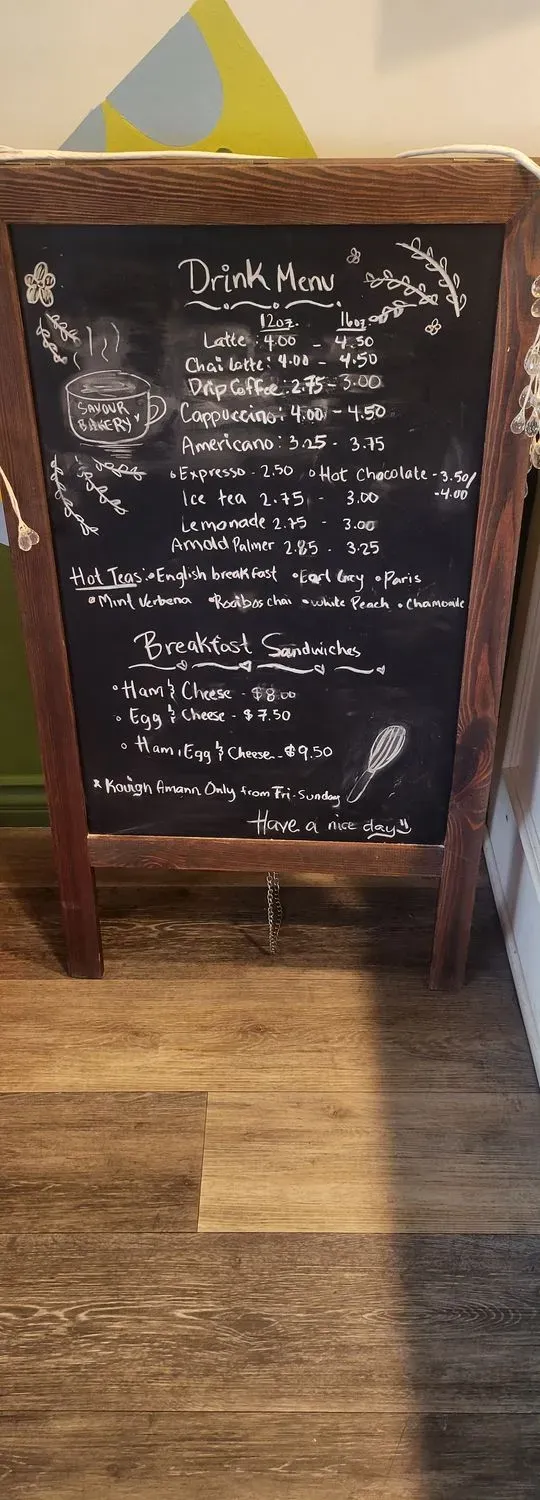 Drink Menu
12oz. 16oz.
Latte : 4.00 - 4.50
Chai Latte : 4.00 - 4.50
Drip Coffee : 2.75 - 3.00
SAVOUR
BAKERY
Cappuccino : 4.00 - 4.50
Americano : 3.25 - 3.75
Expresso - 2.50 Hot Chocolate - 3.50/
-4.00
Ice tea 2.75 - 3.00
Lemonade 2.75 - 3.00
Arnold Palmer 2.85 - 3.25
Hot Teas: •English breakfast •Earl Grey •Paris
•Mint Verbena •Rooibos chai •White Peach •Chamomile
Breakfast Sandwiches
• Ham & Cheese - $8.00
• Egg & Cheese - $7.50
• Ham, Egg & Cheese - $9.50
* Kouigh Amann Only from Fri-Sunday
Have a nice day